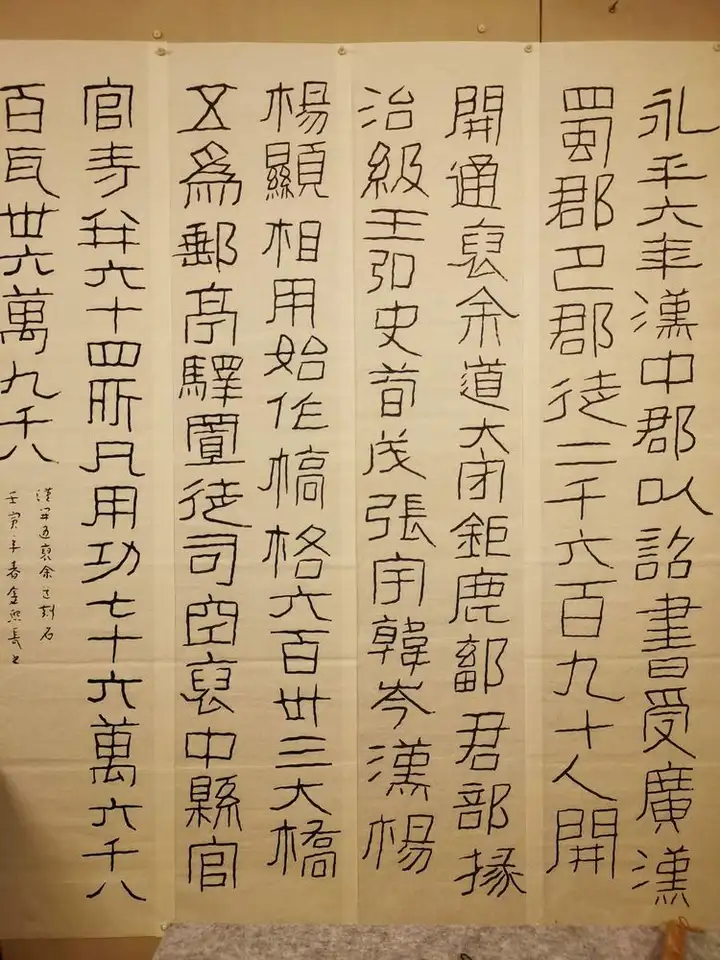 永平六年漢中郡以詔書受廣漢
蜀郡巴郡徒二千六百九十人開
開通褒余道大守鉅鹿鄐君部掾
治級王弘史荀茂張宇韓岑漢楊
楊顯相用始作橋格六百卅三大橋
五為郵亭驛置徒司空褒中縣官
官寺并六十四所凡用功七十六萬六千八
百瓦卅六萬九千八
漢開通褒余道刻石
壬寅年春金熙長書